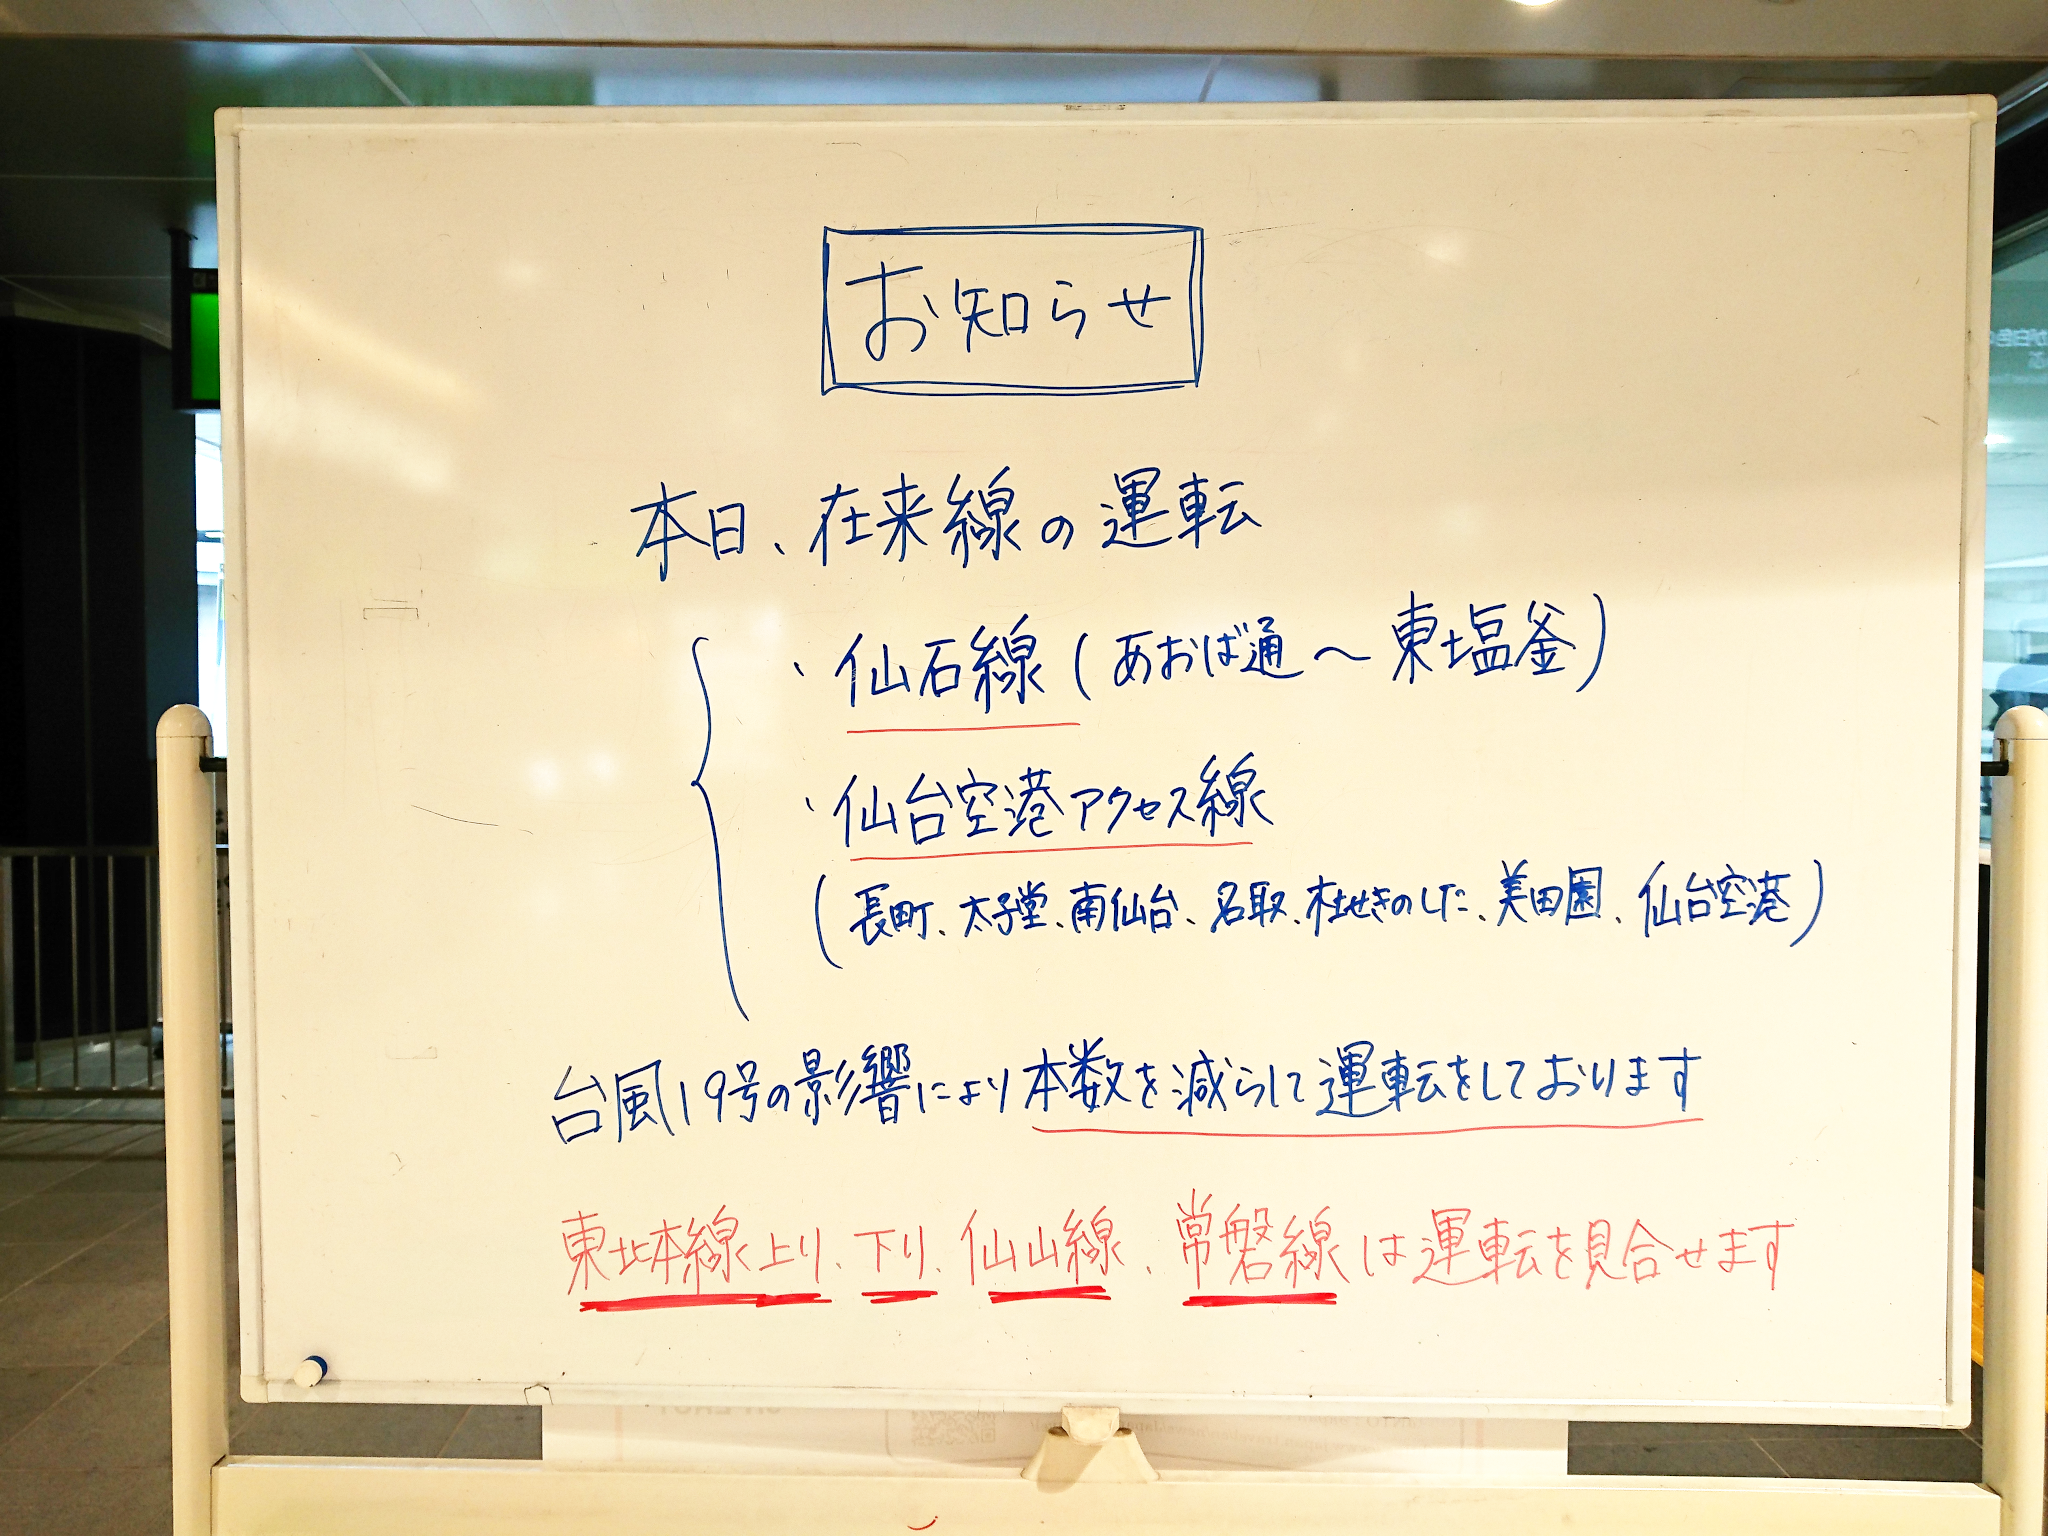 お知らせ
本日、在来線の運転
・仙石線(あおば通〜東塩釜)
・仙台空港アクセス線
(長町、太子堂、南仙台、名取、杜せきのした、美田園、仙台空港)
台風19号の影響により本数を減らして運転をしております
東北本線上り、下り、仙山線、常磐線は運転を見合せます